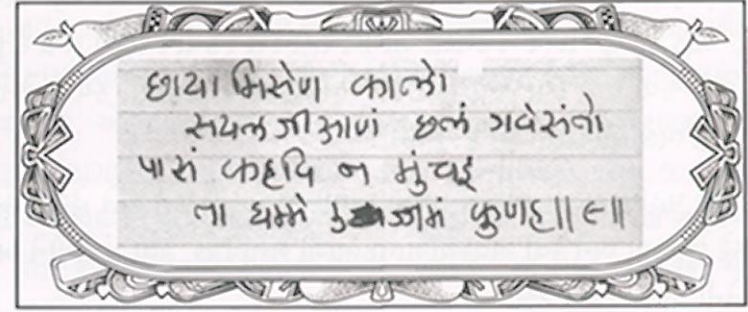 છાયા મિસેણ કાલો
સયલ જીઆણં છલં ગવેસંતો
પાસં કહવિ ન મુંચઇ
તા ધમ્મે ઉજ્જમં કુણહ || ૯ ||